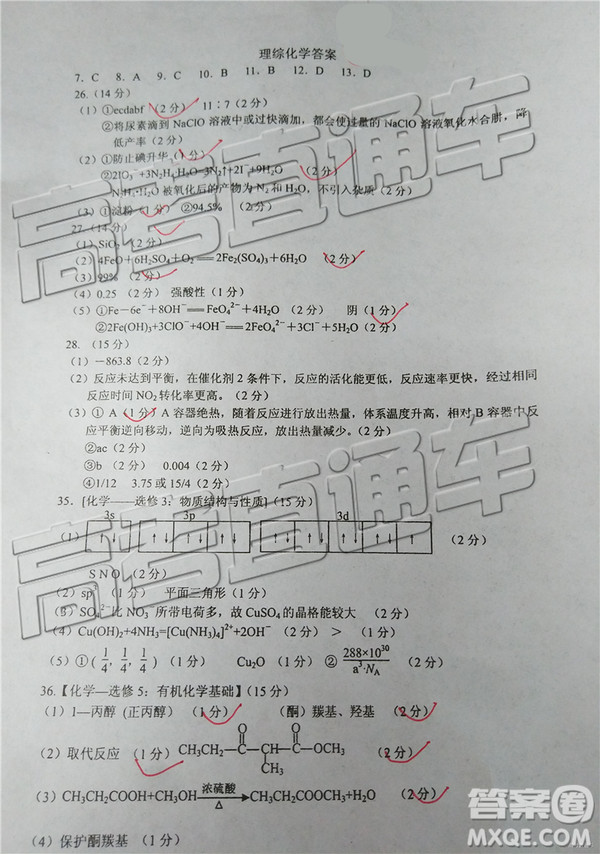 理综化学答案
7. C 8. A 9. C 10. B 11. B 12. D 13. D
26.(14分)
(1)①ecdabf (2分) 11∶7(2分)
②将尿素滴到 NaClO 溶液中或过快滴加，都会使过量的 NaClO 溶液氧化水合肼，降
低产率(2分)
(2)①防止碘升华(2分)
②2IO₃⁻+3N₂H₄·H₂O=3N₂↑+2I⁻+9H₂O (2分)
N₂H₄·H₂O 被氧化后的产物为 N₂ 和 H₂O，不引入杂质(2分)
(3)①淀粉(1分) ②94.5% (2分)
27.(14分)
(1)SiO₂ (2分)
(2)4FeO+6H₂SO₄+O₂═2Fe₂(SO₄)₃+6H₂O (2分)
(3)99% (2分)
(4)0.25 (2分) 强酸性(1分)
(5)①Fe－6e⁻+8OH⁻═FeO₄²⁻+4H₂O (2分) 阴(1分)
②2Fe(OH)₃+3ClO⁻+4OH⁻═2FeO₄²⁻+3Cl⁻+5H₂O (2分)
28.(15分)
(1)－863.8(2分)
(2)反应未达到平衡，在催化剂2条件下，反应的活化能更低，反应速率更快，经过相同
时间 NO₂ 转化率更高。(2分)
(3)① A(1分)A 容器绝热，随着反应进行放出热量，体系温度升高，相对 B 容器中反
应平衡逆向移动，逆向为吸热反应，放出热量减小。(2分)
②ac(2分)
③b (2分) 0.004(2分)
④1/12 3.75 或 15/4(2分)
35.[化学——选修3：物质结构与性质](15分)
3s 3p 3d
(1) ↑↓ ↑↓ ↑↓ ↑↓ ↑↓ ↑↓ ↑↓ ↑↓ ↑ (2分)
S N O (2分)
(2)sp³ (1分) 平面三角形(1分)
(3)SO₄²⁻比 NO₃⁻ 所带电荷多，故 CuSO₄ 的晶格能较大 (2分)
(4)Cu(OH)₂+4NH₃=[Cu(NH₃)₄]²⁺+2OH⁻ (2分) > (1分)
(5)①(1/4, 1/4, 1/4)(1分) Cu₂O (1分) ② 288×10³⁰/a³·N_A (2分)
36.【化学—选修5：有机化学基础】(15分)
(1)1—丙醇 (正丙醇) (1分) (酮)羰基、羟基 (2分)
(2)取代反应 (1分) CH₃CH₂ O CH₃ O OCH₃ (2分)
(3)CH₃CH₂COOH+CH₃OH 浓硫酸 △ CH₃CH₂COOCH₃+H₂O (2分)
(4)保护酮羰基 (1分)
高考直通车
高考直通车
高考直通车
答案圈
MXQE.COM